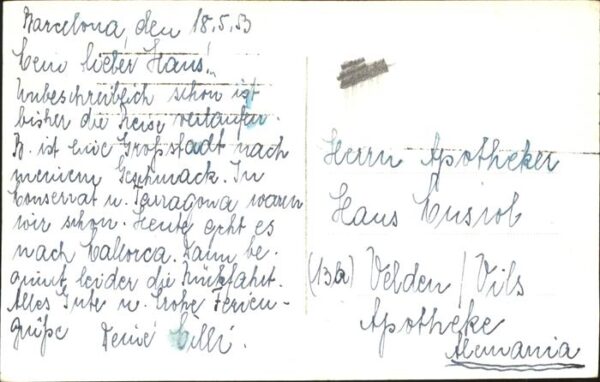 Barcelona, den 18.5.53
Mein lieber Hans!
Unbeschreiblich schön ist
bisher die Reise verlaufen.
B. ist eine Großstadt nach
meinem Geschmack. In
Monserrat u. Tarragona waren
wir schon. Heute geht es
nach Mallorca. Dann be-
ginnt leider die Rückfahrt.
Alles Gute u. frohe Ferien-
grüße Deine
Herrn Apotheker
Hans
(13b) Velden / Vils
Apotheke
Alemania